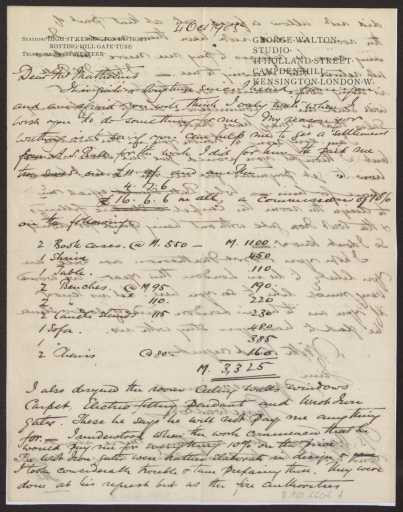 4 Oct 1905
STATIONS HIGH STREET KENSINGTON
NOTTING HILL GATE TUBE
GEORGE WALTON
STUDIO
44 HOLLAND STREET
CAMPDEN HILL
KENSINGTON LONDON W
Dear Mr Mathesius
It is quite a long time since
and am afraid you will think I only write when I
wish you to do something for me. My reason for
writing is to see if you can help me to get a settlement
for the work I did for him. He paid me
two sums viz £11.19/- and
4.7.6
£16.6.6 in all, a commission of 10%
on the following
2 Book cases. @ M. 550 — M. 1100
1 Shrine 450
1 Table. 110
2 Benches. @ M 95 190.
2 " 110. 220
2 Candle Stands 115 230
1 Sofa. 480
1 " 385
2 Chairs @ 80. 160
M. 3,325
I also designed the room Ceiling walls windows
Carpet, Electric fitting Pendant and West Iron
Gates. These he says he will not pay me anything
for. — I understood when the work commenced that he
would pay me for everything 10% on the price
The West Iron gates were rather elaborate in design &
I took considerable trouble & time preparing them. They were
done at his request but as the fire authorities